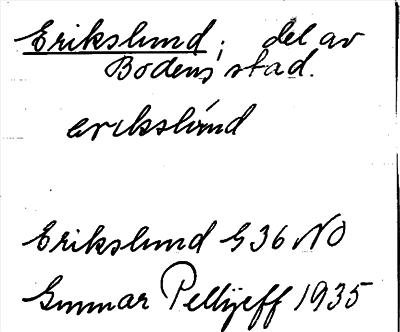 Erikslund; del av
Bodens stad.
erikslund
Erikslund G 36 NO
Gunnar Pellijeff 1935